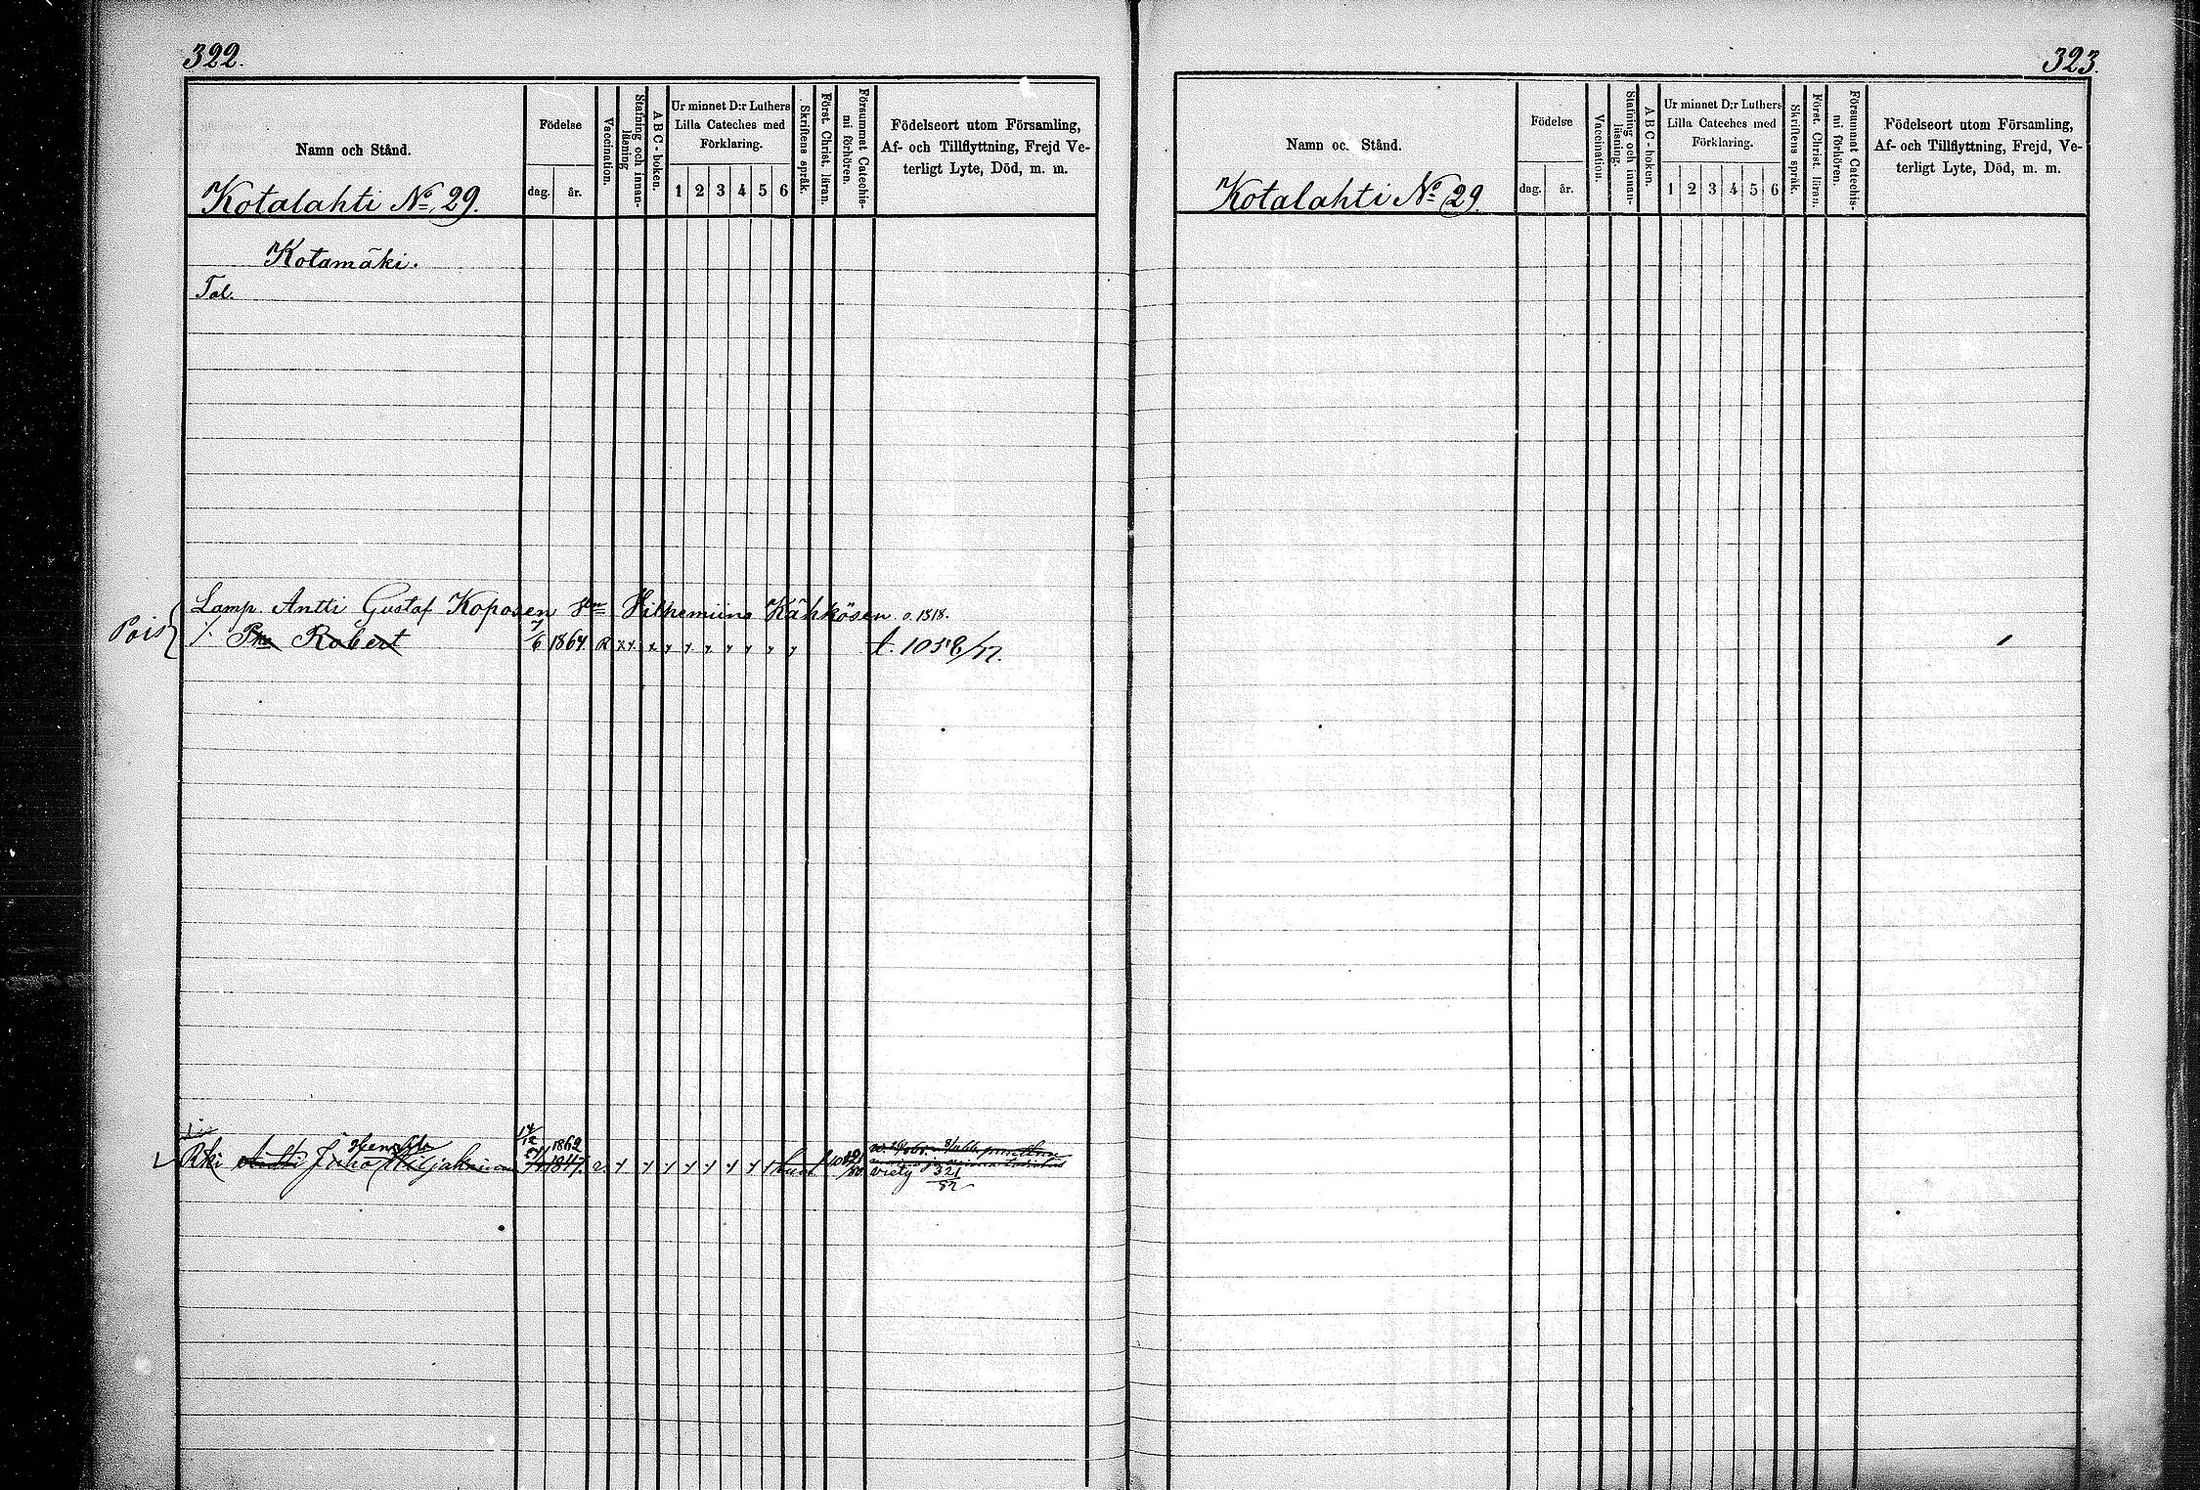 322.
Namn och Stånd.
Födelse
dag. år.
Vaccination.
Stafning och innan-
läsning
ABC-boken.
Ur minnet D:r Luthers
Lilla Cateches med
Förklaring.
1 2 3 4 5 6
Skriftens språk.
Först. Christ. läran.
Försummat Catechis-
mi förhören.
Födelseort utom Församling,
Af- och Tillflyttning, Frejd Ve-
terligt Lyte, Död, m. m.
Kotalahti No. 29.
Kotamäki.
Tal.
Lamp. Antti Gustaf Koposen Hilhemiina Kähkösen o. 1818.
Pois
Robert 7/6 1864. R
Rki Antti Juho Hiljakainen 1847.
1862
viety 321
323.
Namn och Stånd.
Födelse
dag. år.
Vaccination.
Stafning och innan-
läsning.
ABC-boken.
Ur minnet D:r Luthers
Lilla Cateches med
Förklaring.
1 2 3 4 5 6
Skriftens språk.
Först. Christ. läran.
Försummat Catechis-
mi förhören.
Födelseort utom Församling,
Af- och Tillflyttning, Frejd, Ve-
terligt Lyte, Död, m. m.
Kotalahti No. 29.